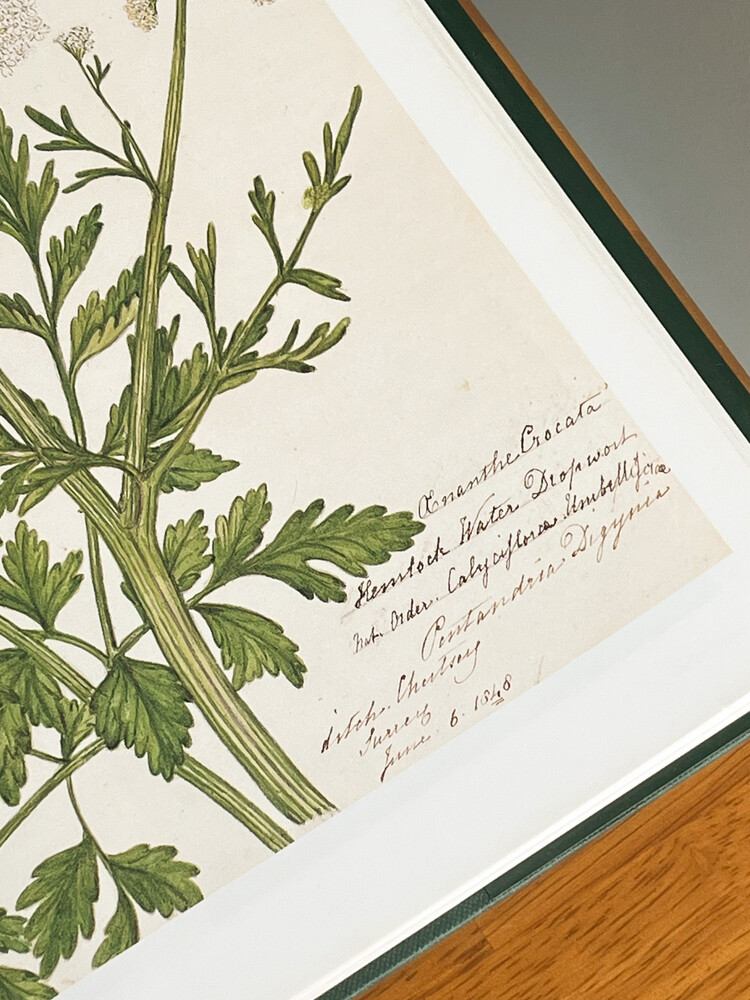 Œnanthe Crocata
Hemlock Water Dropwort
Nat. Order. Calyciflorœ Umbelliferœ
Pentandria Digynia
ditch. Chertsey
Surrey
June. 6. 1848